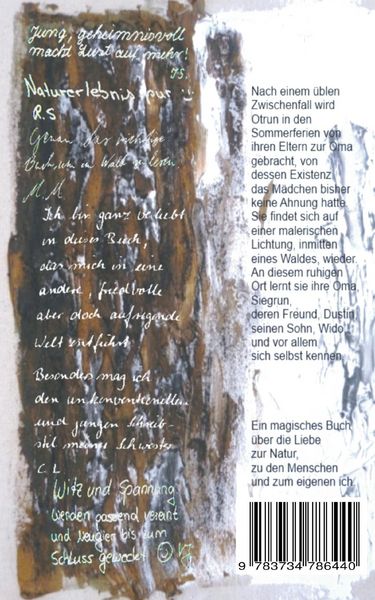 Jung, geheimnisvoll
macht Lust auf mehr!
J.S.
Naturerlebnis pur :-)
R.S
Genau das richtige
Buch, um im Wald zu lesen
M.M
Ich bin ganz verliebt
in dieses Buch,
das mich in eine
andere, friedvolle
aber doch aufregende
Welt entführt
Besonders mag ich
den unkonventionellen
und jungen Schreib-
stil meiner Schwester
C. L
Witz und Spannung
werden passend vereint
und Neugier bis zum
Schluss geweckt
Nach einem üblen
Zwischenfall wird
Otrun in den
Sommerferien von
ihren Eltern zur Oma
gebracht, von
dessen Existenz
das Mädchen bisher
keine Ahnung hatte.
Sie findet sich auf
einer malerischen
Lichtung, inmitten
eines Waldes, wieder.
An diesem ruhigen
Ort lernt sie ihre Oma
Siegrun,
deren Freund, Dustin
seinen Sohn, Wido
und vor allem
sich selbst kennen.
Ein magisches Buch
über die Liebe
zur Natur,
zu den Menschen
und zum eigenen ich.
9 783734 786440